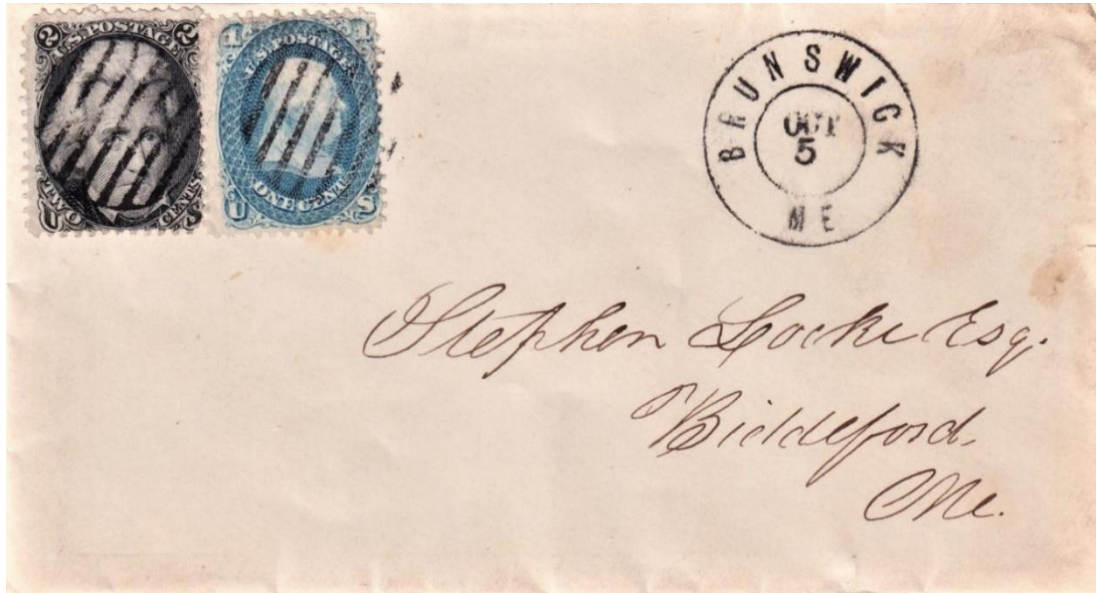 2 U.S. POSTAGE 2
U TWO CENTS S
1 U.S. POSTAGE 1
U ONE CENT S
BRUNSWICK
OCT
5
ME
Stephen Locke Esq.
Biddeford.
Me.